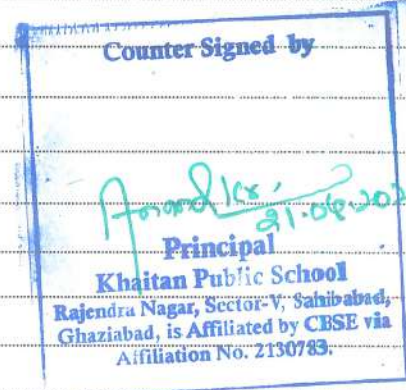 Counter Signed by
Anand Kr.
Principal
Khaitan Public School
Rajendra Nagar, Sector-V, Sahibabad,
Ghaziabad, is Affiliated by CBSE via
Affiliation No. 2130783.